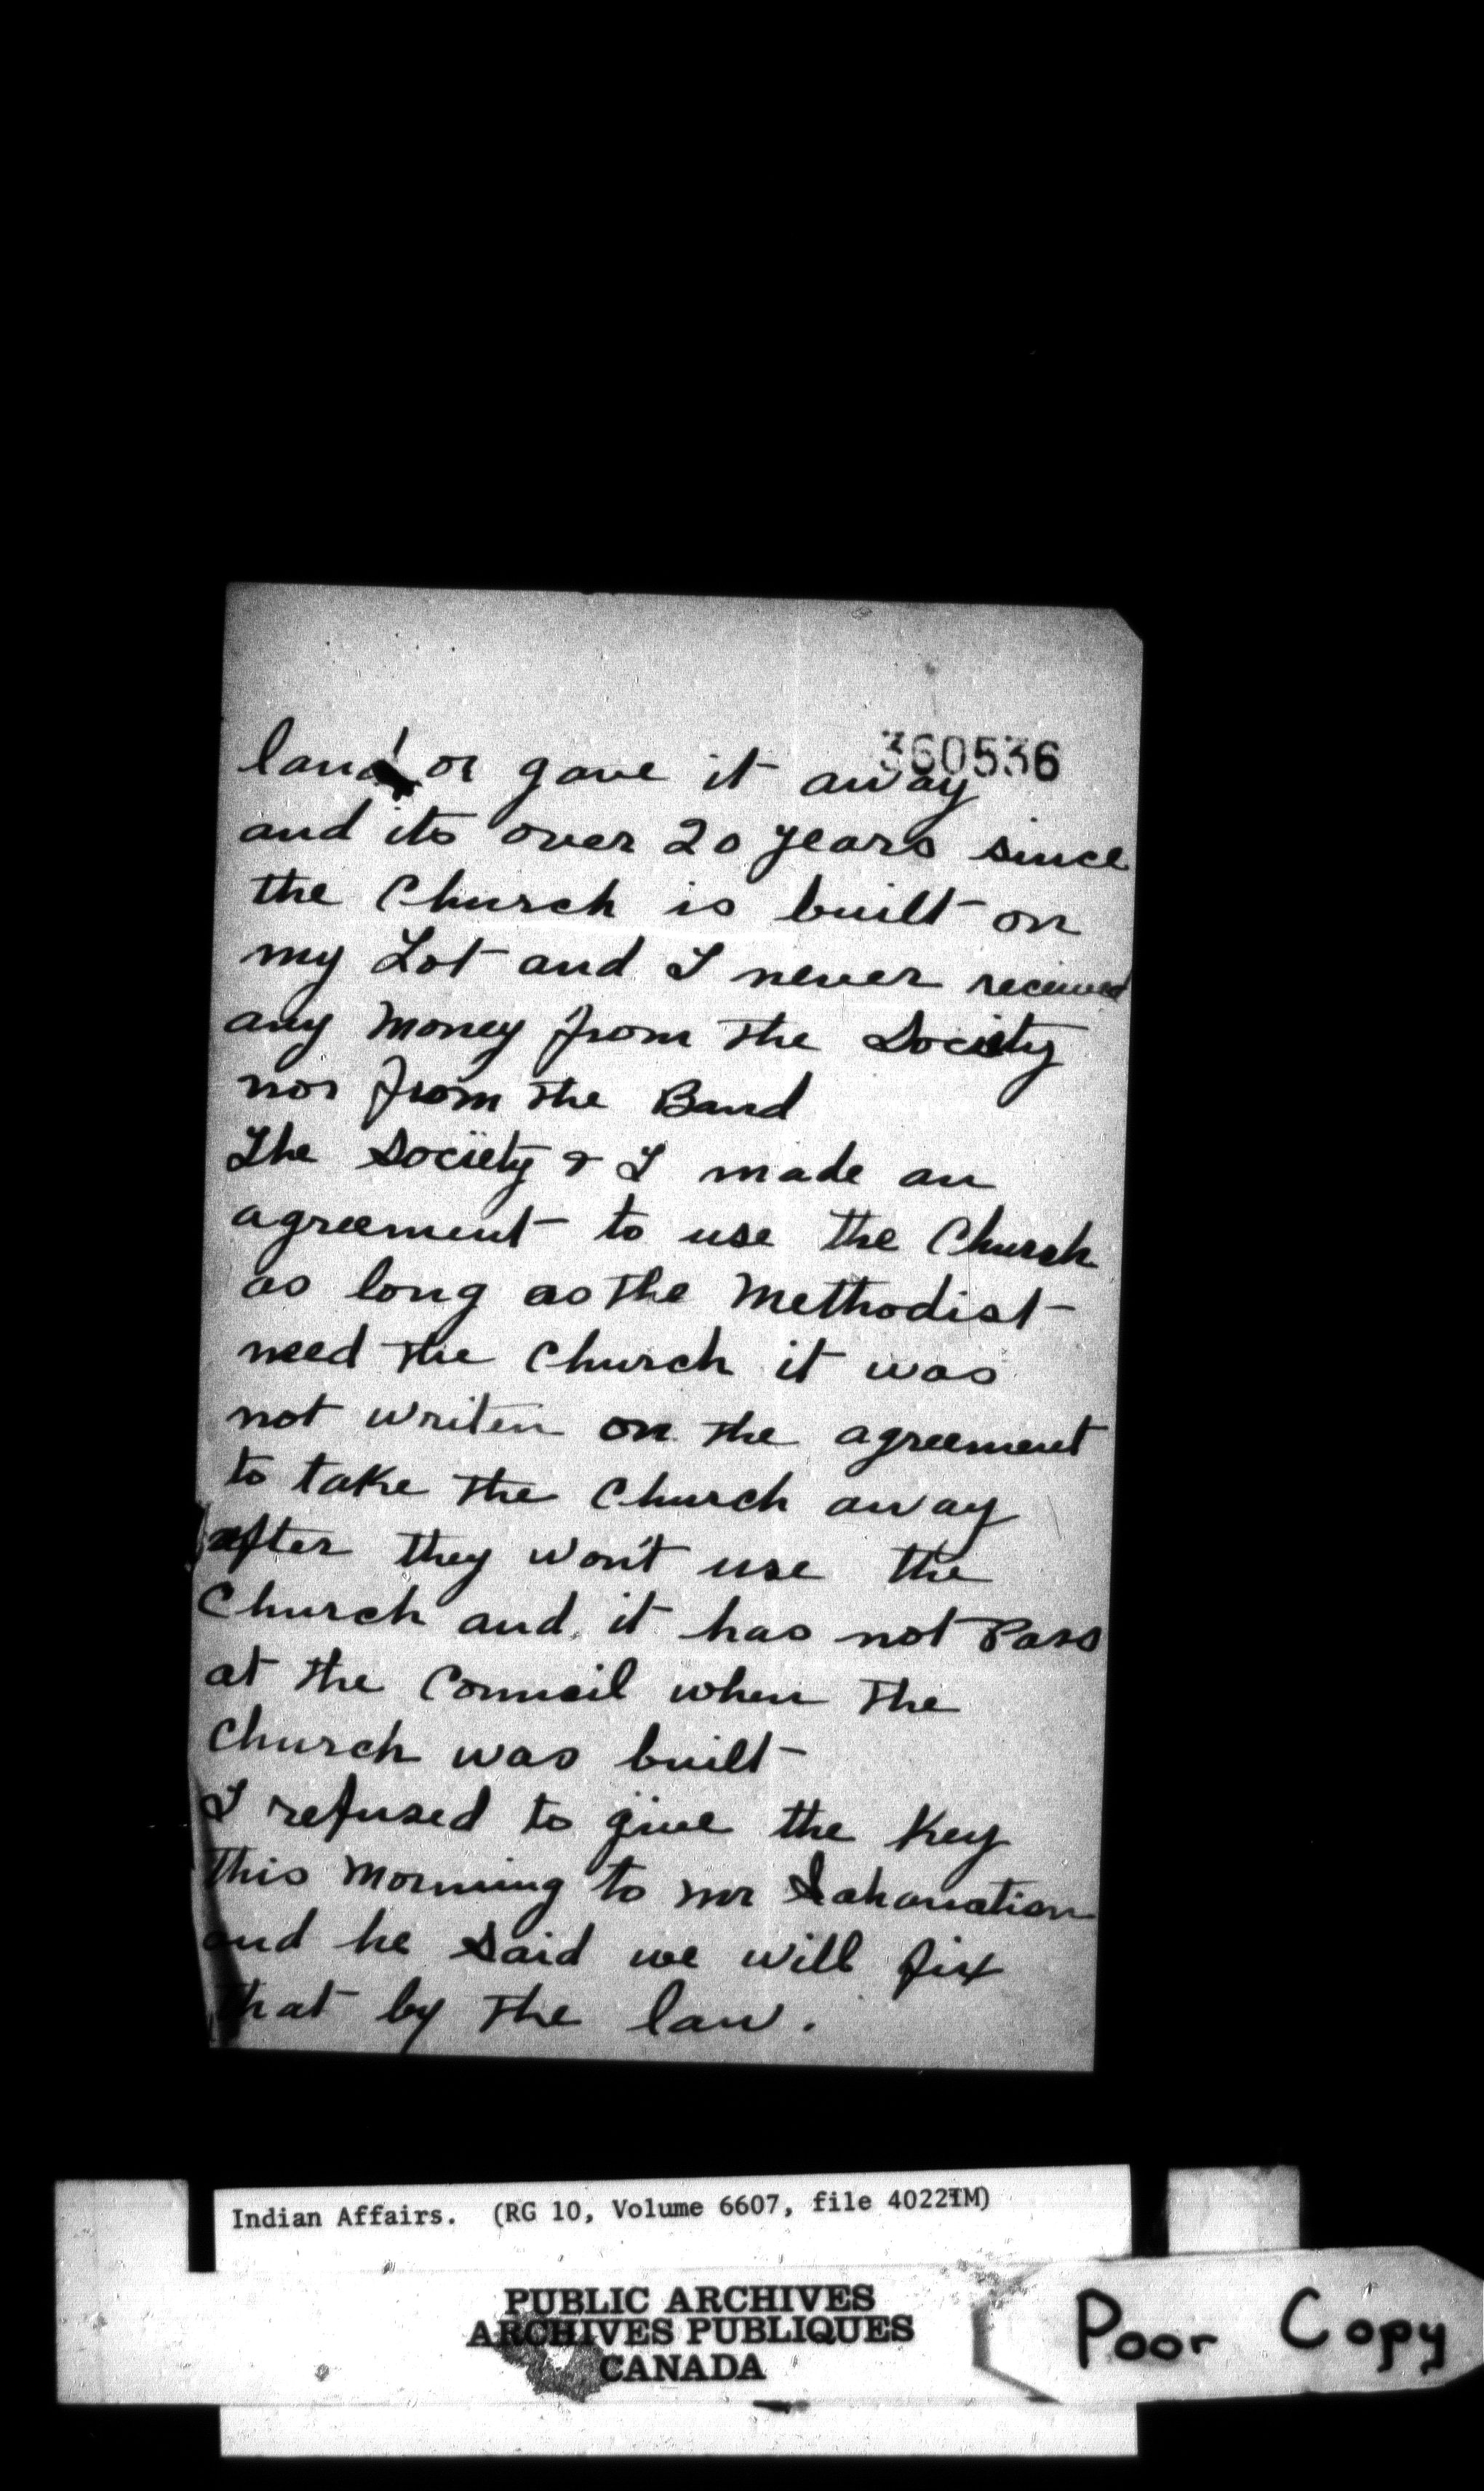 360536
land or gave it away
and its over 20 years since
the Church is built on
my Lot and I never received
any money from the Society
nor from the Band
The Society & I made an
agreement to use the Church
as long as the Methodist
need the Church it was
not writen on the agreement
to take the Church away
after they won't use the
Church and it has not Pass
at the Council when the
Church was built
I refused to give the Key
this morning to mr
and he said we will fix
that by the law.
Indian Affairs. (RG 10, Volume 6607, file 4022 M)
PUBLIC ARCHIVES
ARCHIVES PUBLIQUES
CANADA
Poor Copy